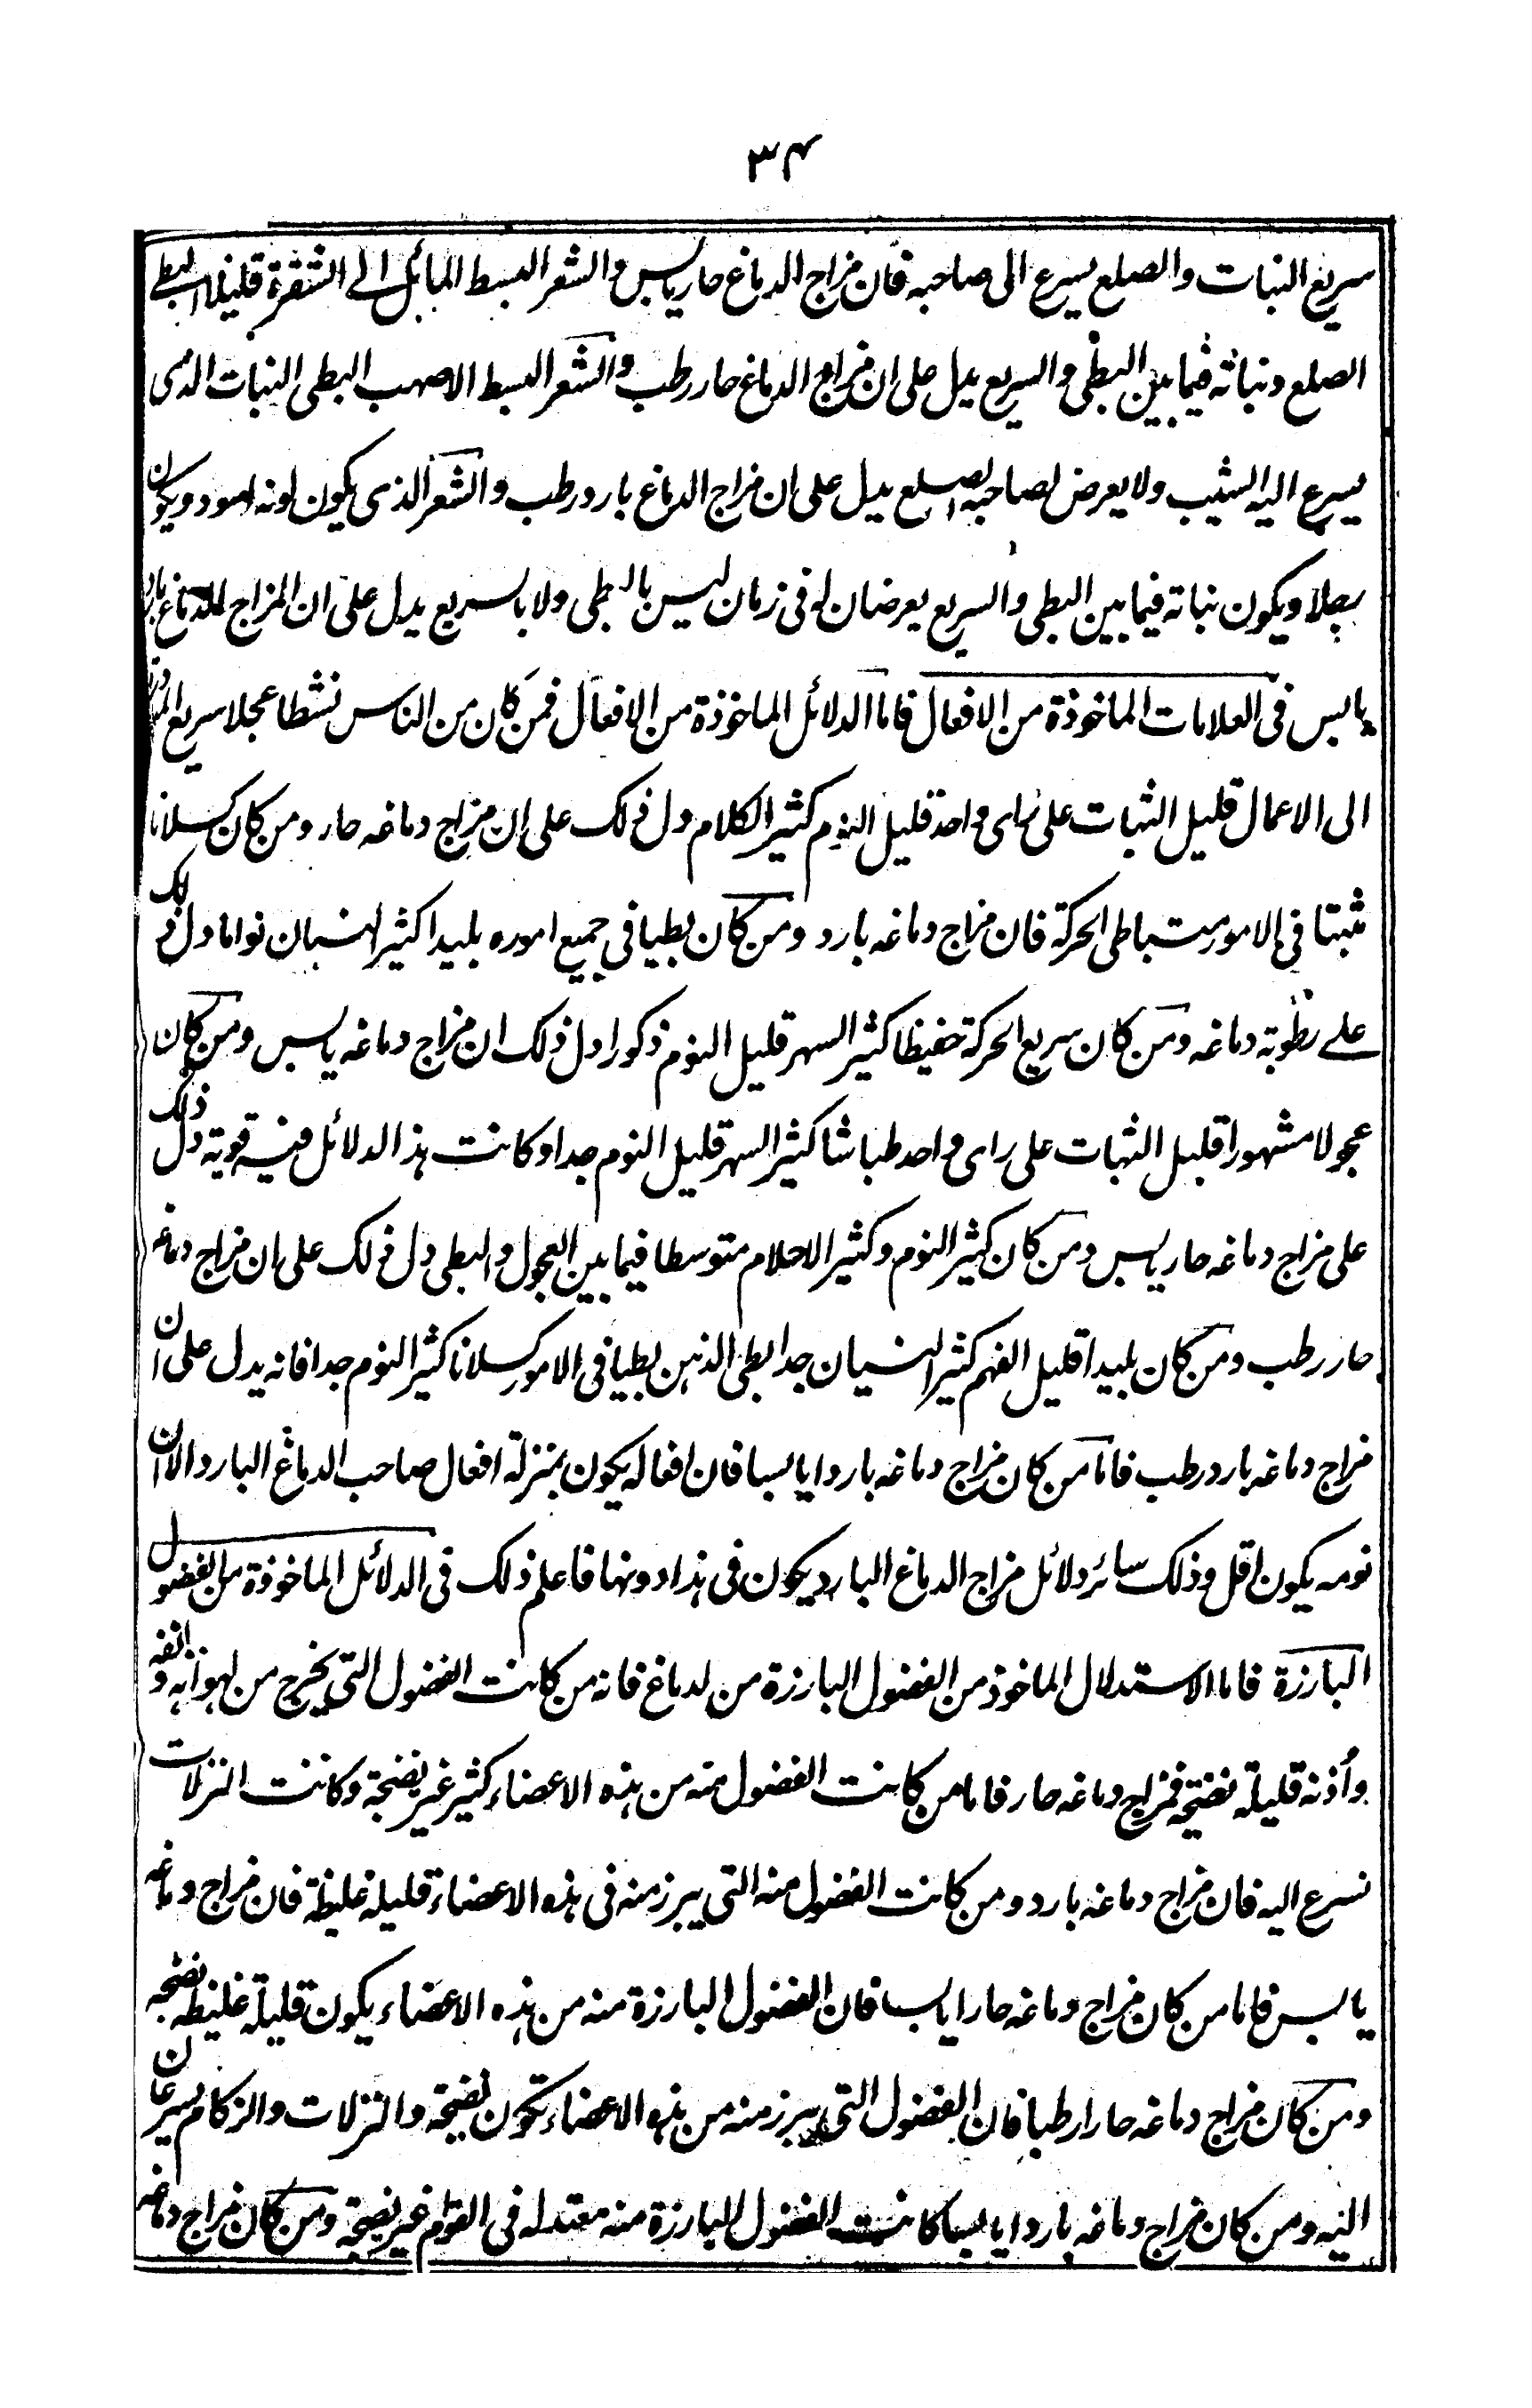 ۳۴
سريع النبات والصلع يسرع الى صاحبه فان مزاج الدماغ حار يابس والشعر البسط المائل الى الشقرة قليلا البطى
الصلع ونباته فيما بين البطى والسريع يدل على ان مزاج الدماغ حار رطب والشعر البسط الاصهب البطى النبات الذى
يسرع اليه الشيب ولا يعرض لصاحبه الصلع يدل على ان مزاج الدماغ بارد رطب والشعر الذى يكون لونه اسود ويكون
ويكون نباته فيما بين البطى والسريع يعرضان له فى زمان ليس بالبطى ولا بالسريع يدل على ان المزاج للدماغ بارد
يابس فى العلامات الماخوذة من الافعال فاما الدلائل الماخوذة من الافعال فمن كان من الناس نشطا عجلا سريع
الى الاعمال قليل الثبات على راى واحد قليل النوم كثير الكلام دل ذلك على ان مزاج دماغه حار ومن كان كسلانا
مثبتا فى الامور متباطى الحركة فان مزاج دماغه بارد ومن كان بطيا فى جميع اموره بليدا كثير النسيان نواما دل ذلك
على رطوبة دماغه ومن كان سريع الحركة حفيظا كثير السهر قليل النوم ذكورا دل ذلك ان مزاج دماغه يابس ومن كان
عجولا مشهورا قليل الثبات على راى واحد طباشا كثير السهر قليل النوم جدا وكانت هذا الدلائل فيه قوية دل ذلك
على مزاج دماغه حار يابس ومن كان كثير النوم وكثير الاحلام متوسطا فيما بين العجول والبطى دل ذلك على ان مزاج دماغه
حار رطب ومن كان بليدا قليل الفهم كثير النسيان جدا بطى الذهن بطيا فى الامور كسلانا كثير النوم جدا فانه يدل على ان
مزاج دماغه بارد رطب فاما من كان مزاج دماغه باردا يابسا فان افعاله يكون بمنزلة افعال صاحب الدماغ البارد الا ان
نومه يكون اقل وذلك سائر دلائل مزاج الدماغ البارد يكون فى هذا دونها فاعلم ذلك فى الدلائل الماخوذة من الفضول
البارزة فاما الاستدلال الماخوذ من الفضول البارزة من الدماغ فانه من كانت الفضول التى يخرج من لهواته وانفه
واُذنه قليلة نضيجة فمزاج دماغه حار فاما من كانت الفضول منه من هذه الاعضاء كثير غير نضجة وكانت النزلات
تسرع اليه فان مزاج دماغه بارد ومن كانت الفضول منه التى يبرز منه فى هذه الاعضاء قليلة غليظة فان مزاج دماغه
يابس فاما من كان مزاج دماغه حارا يابسا فان الفضول البارزة منه من هذه الاعضاء يكون قليلة غليظه نضجه
ومن كان مزاج دماغه حارا رطبا فان الفضول التى يبرز منه من هذه الاعضاء تكون نضيجة والنزلات والزكام يسرعان
اليه ومن كان مزاج دماغه باردا يابسا كانت الفضول البارزة منه معتدله فى القوام غير نضجة ومن كان مزاج دماغه